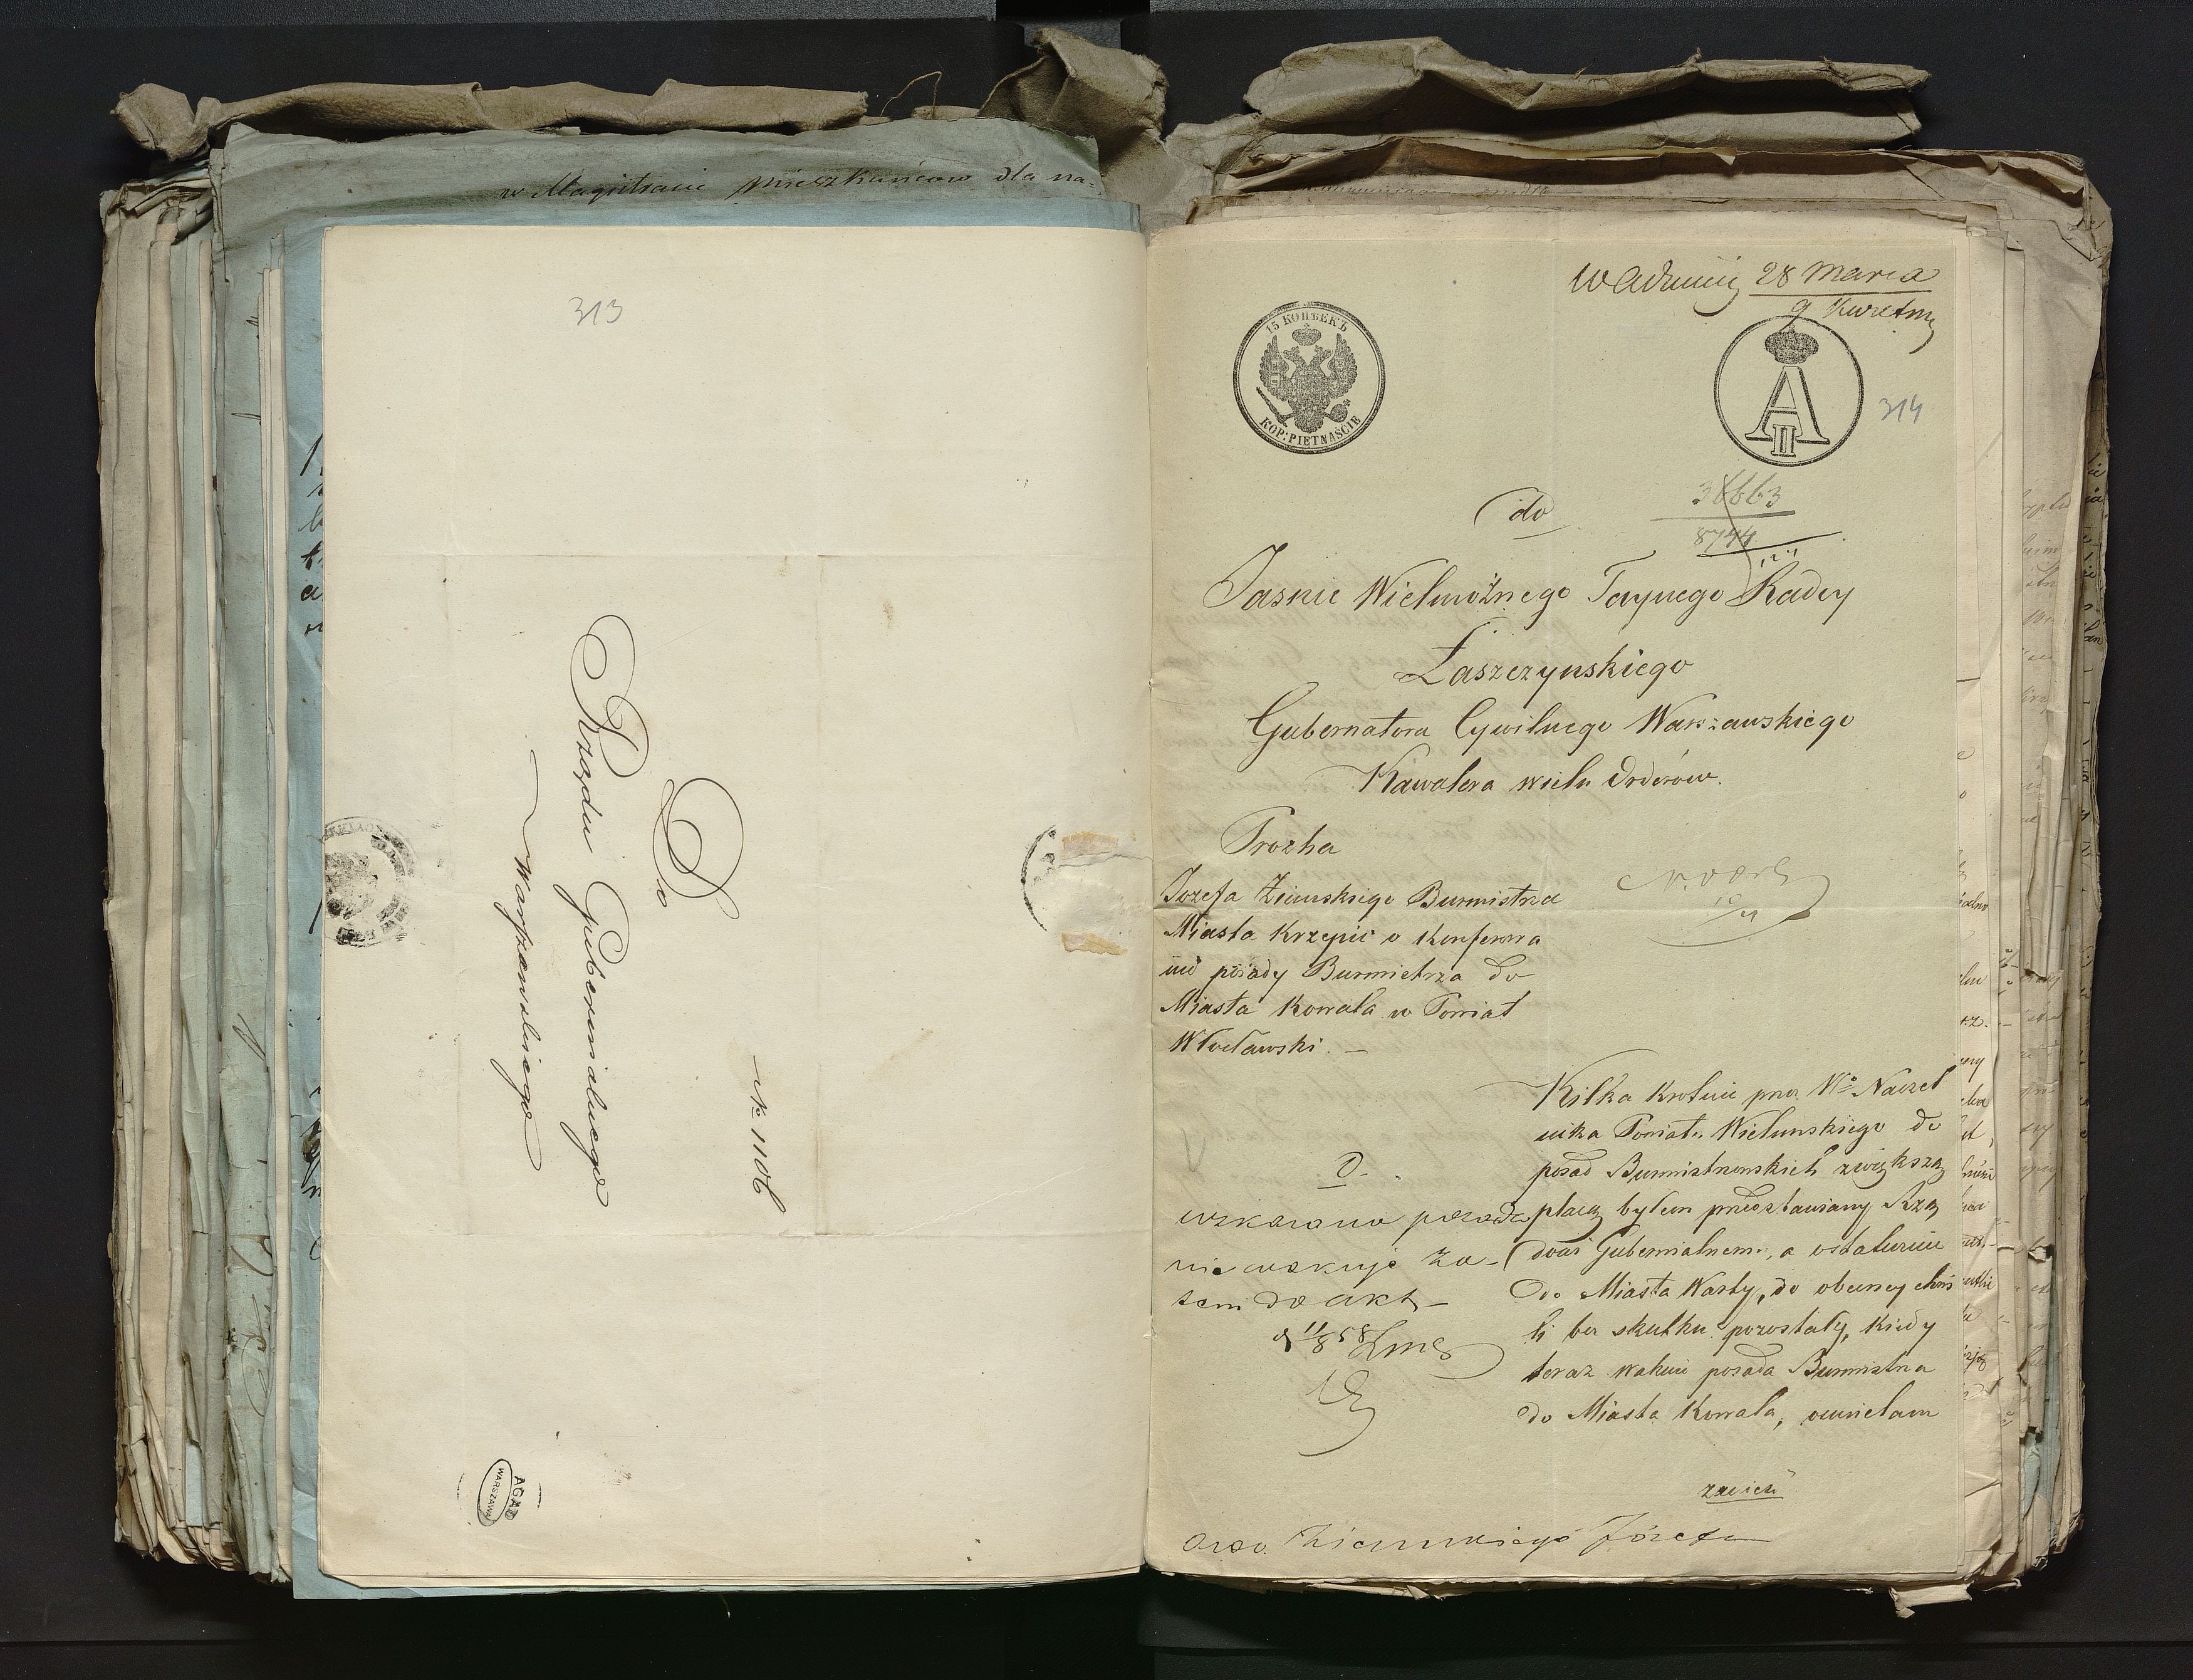 w Magistracie mieszkańców dla na=
313
Do
Rządu Gubernialnego
Warszawskiego
№ 1106
AGAD
WARSZAWA
W Admini 28 Marca
9 Kwietnia
15 КОПѢЕКЪ
KOP: PIETNAŚCIE
A
II
314
do
38663
8744
Jasnie Wielmożnego Taynego Radcy
Łaszczynskiego
Gubernatora Cywilnego Warszawskiego
Kawalera wielu Orderów.
Prozba
Jozefa Ziemskiego Burmistrza
Miasta Krzepic o Konferowa
nie posady Burmistrza do
Miasta Kowala w Powiat
Włocławski. —
Kilka krotnie przez Wº Naczel
nika Powiatu Wielunskiego do
posad Burmistrzowskich zwiększą
płacą byłem przedstawiany Rzą
dowi Gubernialnemu, a ostatecznie
do Miasta Warty, do obecney chwi
li bez skutku pozostały, kiedy
teraz wakuie posada Burmistrza
do Miasta Kowala, osmielam
wskazana posada
nie wakuje za-
tem do akt —
11/8 58
zanieść
Ziemskiego Józefa